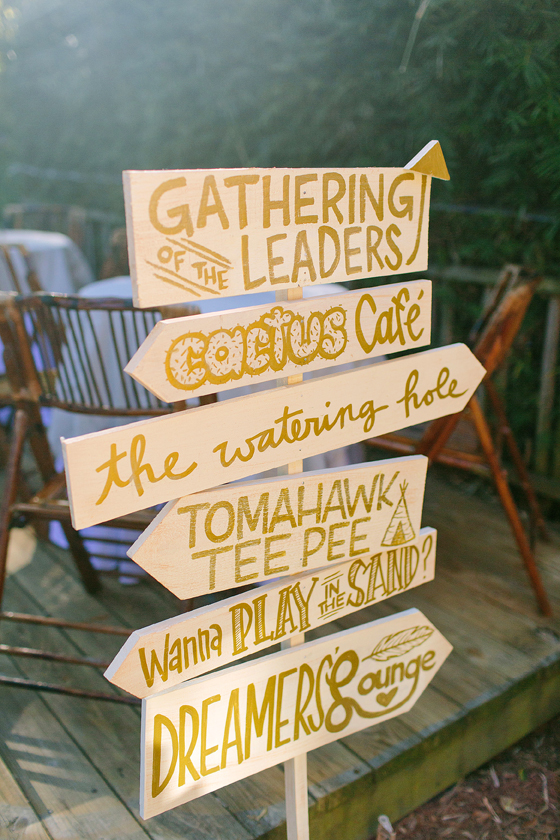 GATHERING
OF THE LEADERS
cactus Café
the watering hole
TOMAHAWK
TEE PEE
Wanna PLAY IN THE SAND?
DREAMERS' Lounge